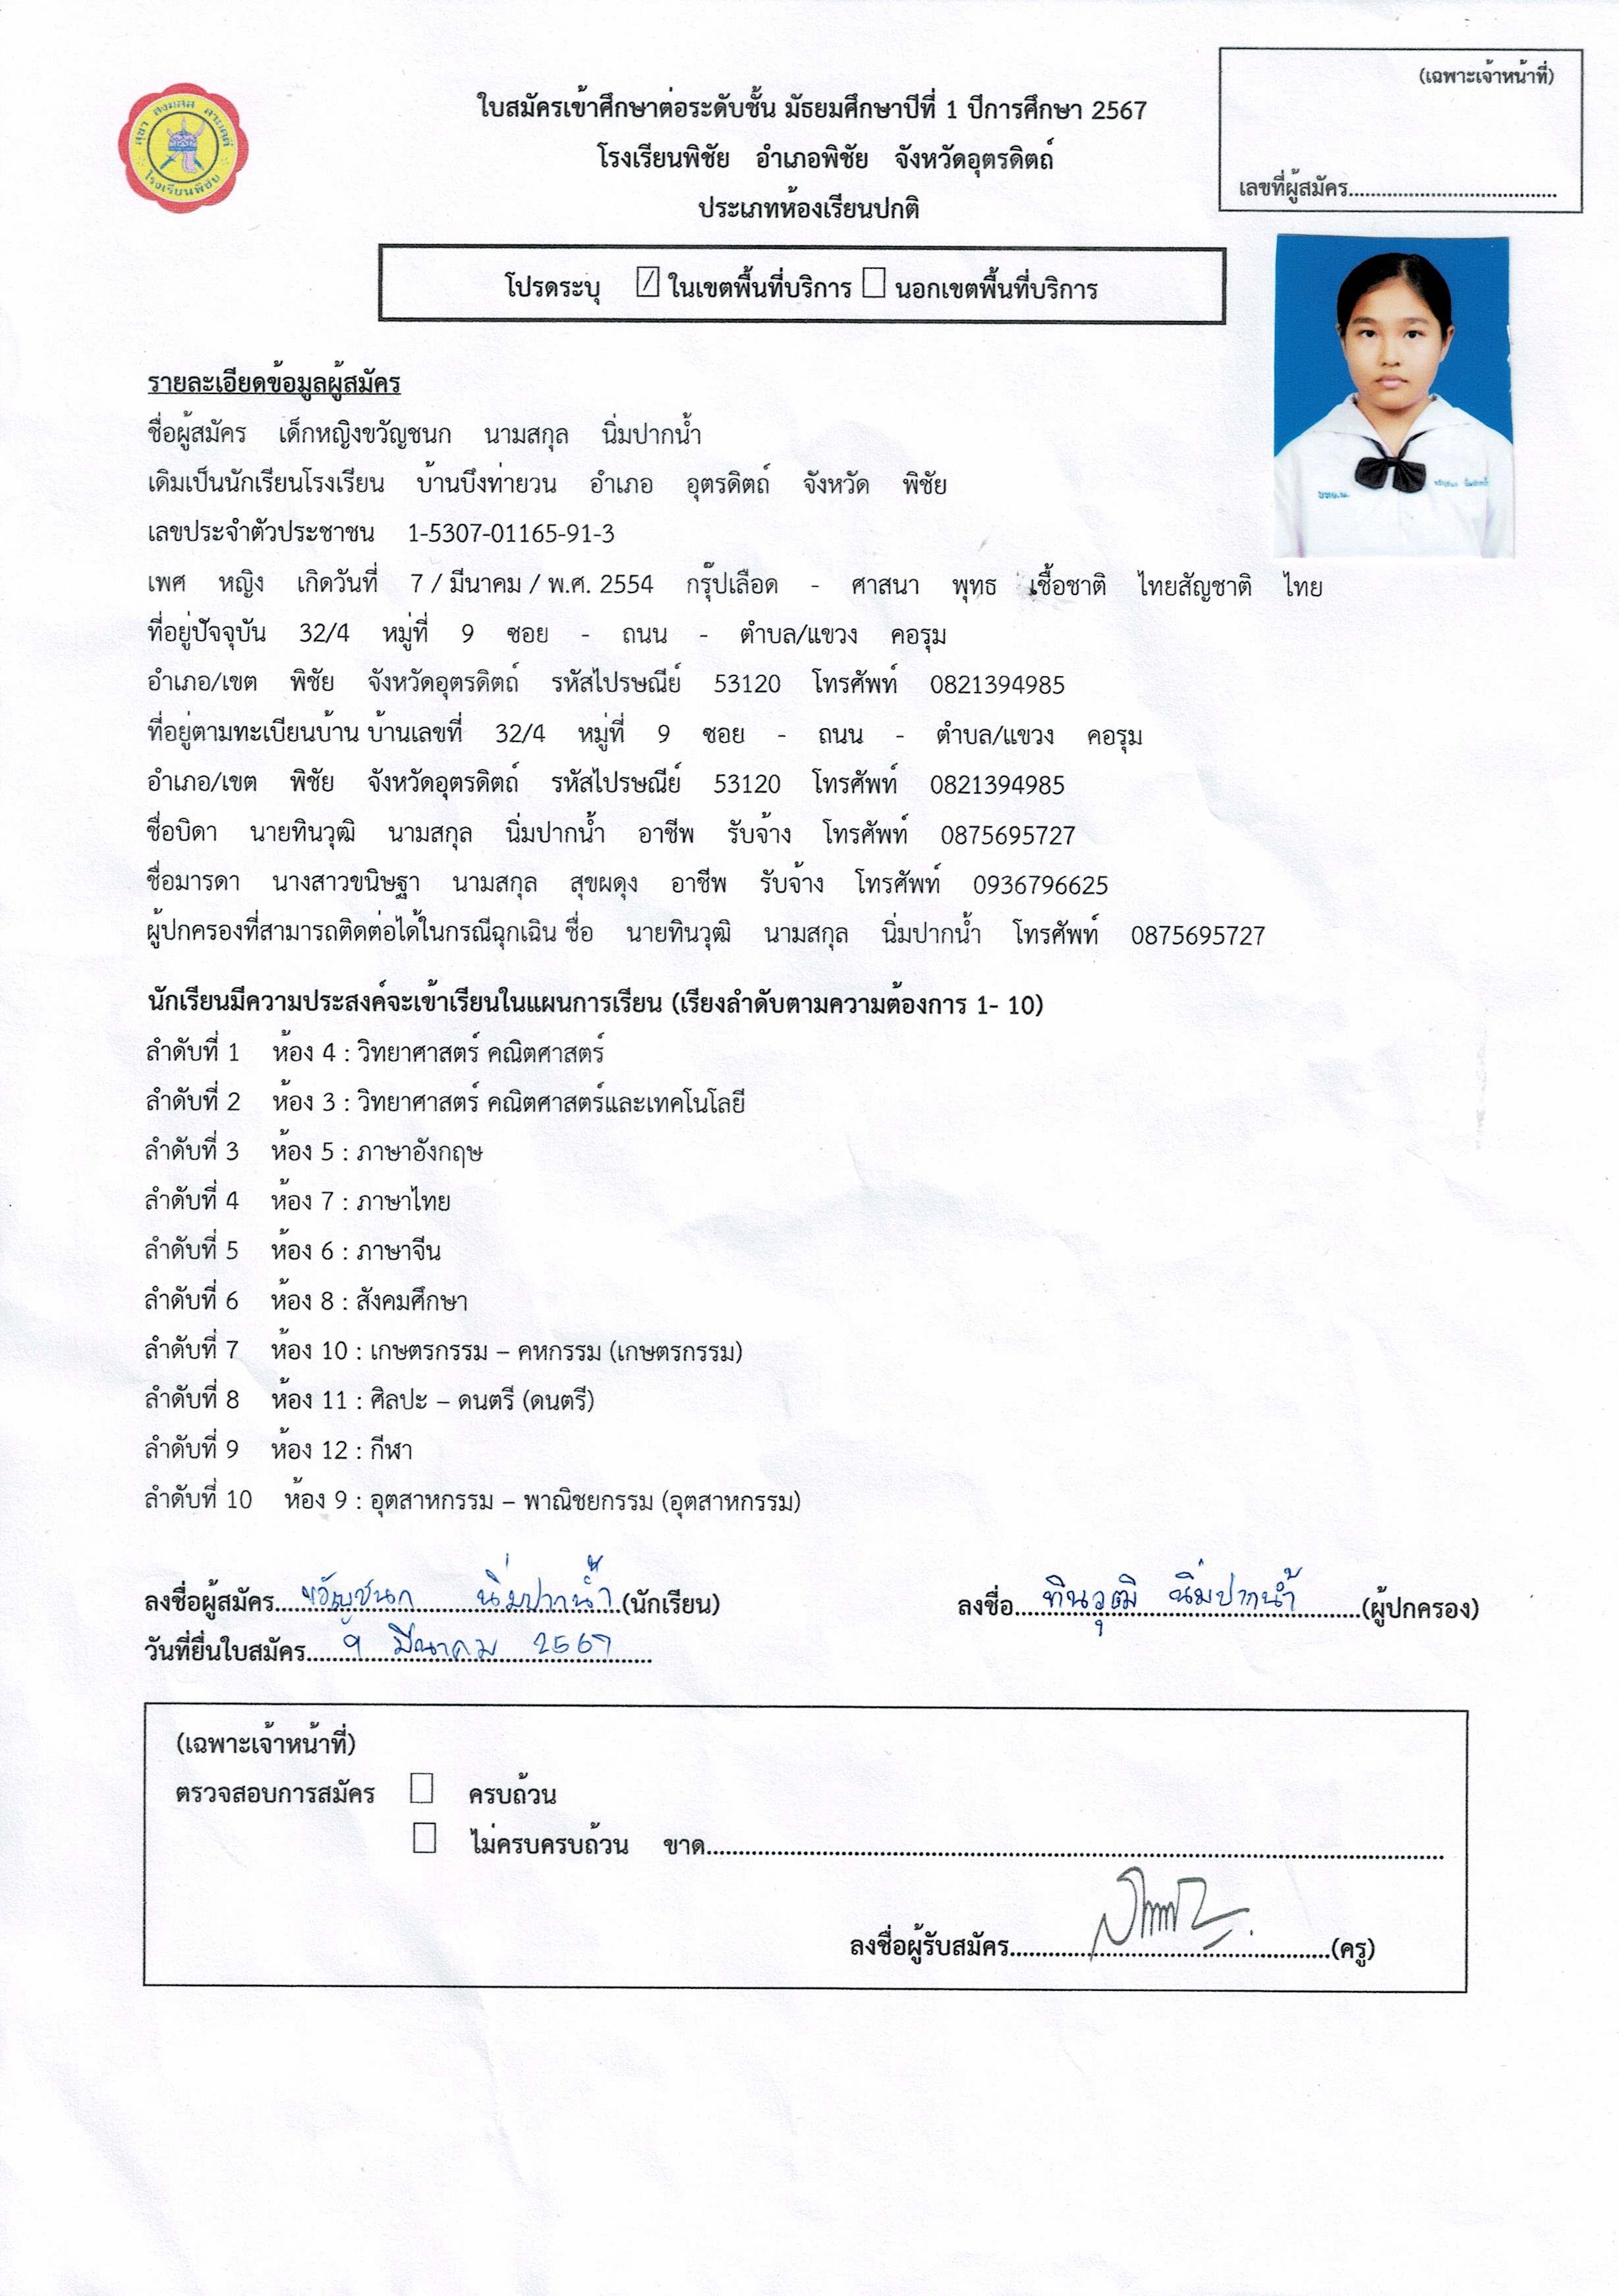 (เฉพาะเจ้าหน้าที่)
เลขที่ผู้สมัคร......................................
โรงเรียนพิชัย
ใบสมัครเข้าศึกษาต่อระดับชั้น มัธยมศึกษาปีที่ 1 ปีการศึกษา 2567
โรงเรียนพิชัย อำเภอพิชัย จังหวัดอุตรดิตถ์
ประเภทห้องเรียนปกติ
โปรดระบุ ☑ ในเขตพื้นที่บริการ ☐ นอกเขตพื้นที่บริการ
รายละเอียดข้อมูลผู้สมัคร
ชื่อผู้สมัคร เด็กหญิงขวัญชนก นามสกุล นิ่มปากน้ำ
เดิมเป็นนักเรียนโรงเรียน บ้านบึงท่ายวน อำเภอ อุตรดิตถ์ จังหวัด พิชัย
เลขประจำตัวประชาชน 1-5307-01165-91-3
เพศ หญิง เกิดวันที่ 7 / มีนาคม / พ.ศ. 2554 กรุ๊ปเลือด - ศาสนา พุทธ เชื้อชาติ ไทยสัญชาติ ไทย
ที่อยู่ปัจจุบัน 32/4 หมู่ที่ 9 ซอย - ถนน - ตำบล/แขวง คอรุม
อำเภอ/เขต พิชัย จังหวัดอุตรดิตถ์ รหัสไปรษณีย์ 53120 โทรศัพท์ 0821394985
ที่อยู่ตามทะเบียนบ้าน บ้านเลขที่ 32/4 หมู่ที่ 9 ซอย - ถนน - ตำบล/แขวง คอรุม
อำเภอ/เขต พิชัย จังหวัดอุตรดิตถ์ รหัสไปรษณีย์ 53120 โทรศัพท์ 0821394985
ชื่อบิดา นายทินวุฒิ นามสกุล นิ่มปากน้ำ อาชีพ รับจ้าง โทรศัพท์ 0875695727
ชื่อมารดา นางสาวขนิษฐา นามสกุล สุขผดุง อาชีพ รับจ้าง โทรศัพท์ 0936796625
ผู้ปกครองที่สามารถติดต่อได้ในกรณีฉุกเฉิน ชื่อ นายทินวุฒิ นามสกุล นิ่มปากน้ำ โทรศัพท์ 0875695727
นักเรียนมีความประสงค์จะเข้าเรียนในแผนการเรียน (เรียงลำดับตามความต้องการ 1- 10)
ลำดับที่ 1 ห้อง 4 : วิทยาศาสตร์ คณิตศาสตร์
ลำดับที่ 2 ห้อง 3 : วิทยาศาสตร์ คณิตศาสตร์และเทคโนโลยี
ลำดับที่ 3 ห้อง 5 : ภาษาอังกฤษ
ลำดับที่ 4 ห้อง 7 : ภาษาไทย
ลำดับที่ 5 ห้อง 6 : ภาษาจีน
ลำดับที่ 6 ห้อง 8 : สังคมศึกษา
ลำดับที่ 7 ห้อง 10 : เกษตรกรรม – คหกรรม (เกษตรกรรม)
ลำดับที่ 8 ห้อง 11 : ศิลปะ – ดนตรี (ดนตรี)
ลำดับที่ 9 ห้อง 12 : กีฬา
ลำดับที่ 10 ห้อง 9 : อุตสาหกรรม – พาณิชยกรรม (อุตสาหกรรม)
ลงชื่อผู้สมัคร....ขวัญชนก นิ่มปากน้ำ....(นักเรียน) ลงชื่อ....ทินวุฒิ นิ่มปากน้ำ....(ผู้ปกครอง)
วันที่ยื่นใบสมัคร....9 มีนาคม 2567....
(เฉพาะเจ้าหน้าที่)
ตรวจสอบการสมัคร ☐ ครบถ้วน
☐ ไม่ครบครบถ้วน ขาด..........................................................
ลงชื่อผู้รับสมัคร..........................................................(ครู)